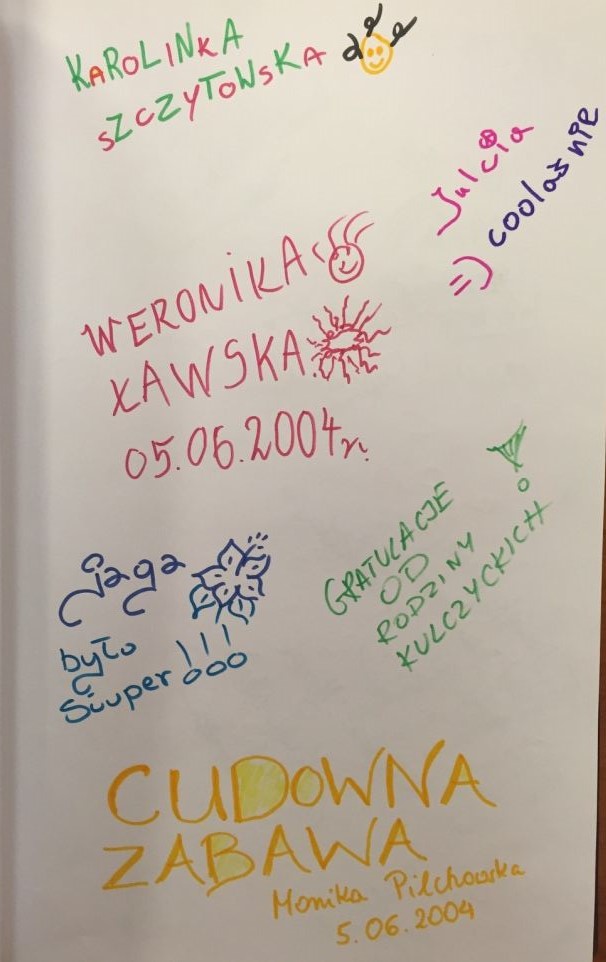 KAROLINKA
SZCZYTOWSKA
Julcia
=) coolaśnie
WERONIKA
ŁAWSKA
05.06.2004r.
jaga
było
Siuper!!!
GRATULACJE
OD
RODZINY
KULCZYCKICH!
CUDOWNA
ZABAWA
Monika Pilchowska
5.06.2004